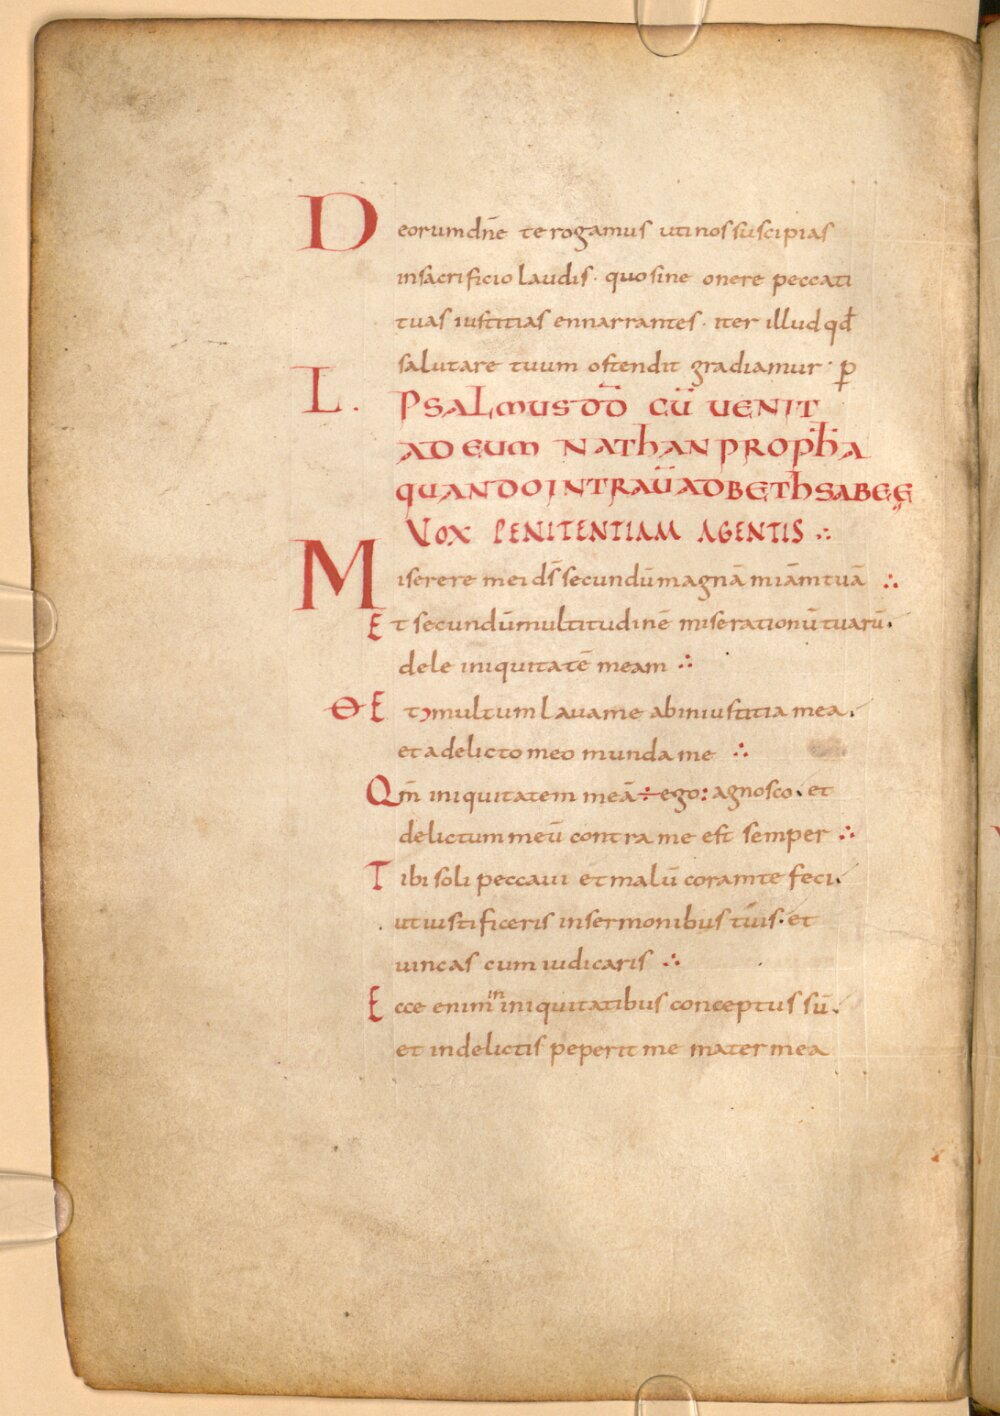 Deorum dn̄e te rogamus uti nos suscipias
in sacrificio laudis · quo sine onere peccati
tuas iustitias ennarrantes · iter illud qđ
salutare tuum ostendit gradiamur · p̱
L. PSALMUS DD̄ CŪ UENIT
AD EUM NATHAN PROPH̄A
QUANDO INTRAUĪ AD BETHSABEĘ
VOX PENITENTIAM AGENTIS ∴
Miserere mei ds̄ secundū magnā miām tuā ∴
Et secundū multitudinē miserationū tuarū.
dele iniquitatē meam ∴
Θ Et multum lava me ab iniustitia mea.
et a delicto meo munda me ∴
Qm̄ iniquitatem meā ÷ ego : agnosco. et
delictum meū contra me est semper ∴
Tibi soli peccavi et malū coram te feci.
ut iustificeris in sermonibus tuis. et
uincas cum iudicaris ∴
Ecce enim in iniquitatibus conceptus sū.
et in delictis peperit me mater mea